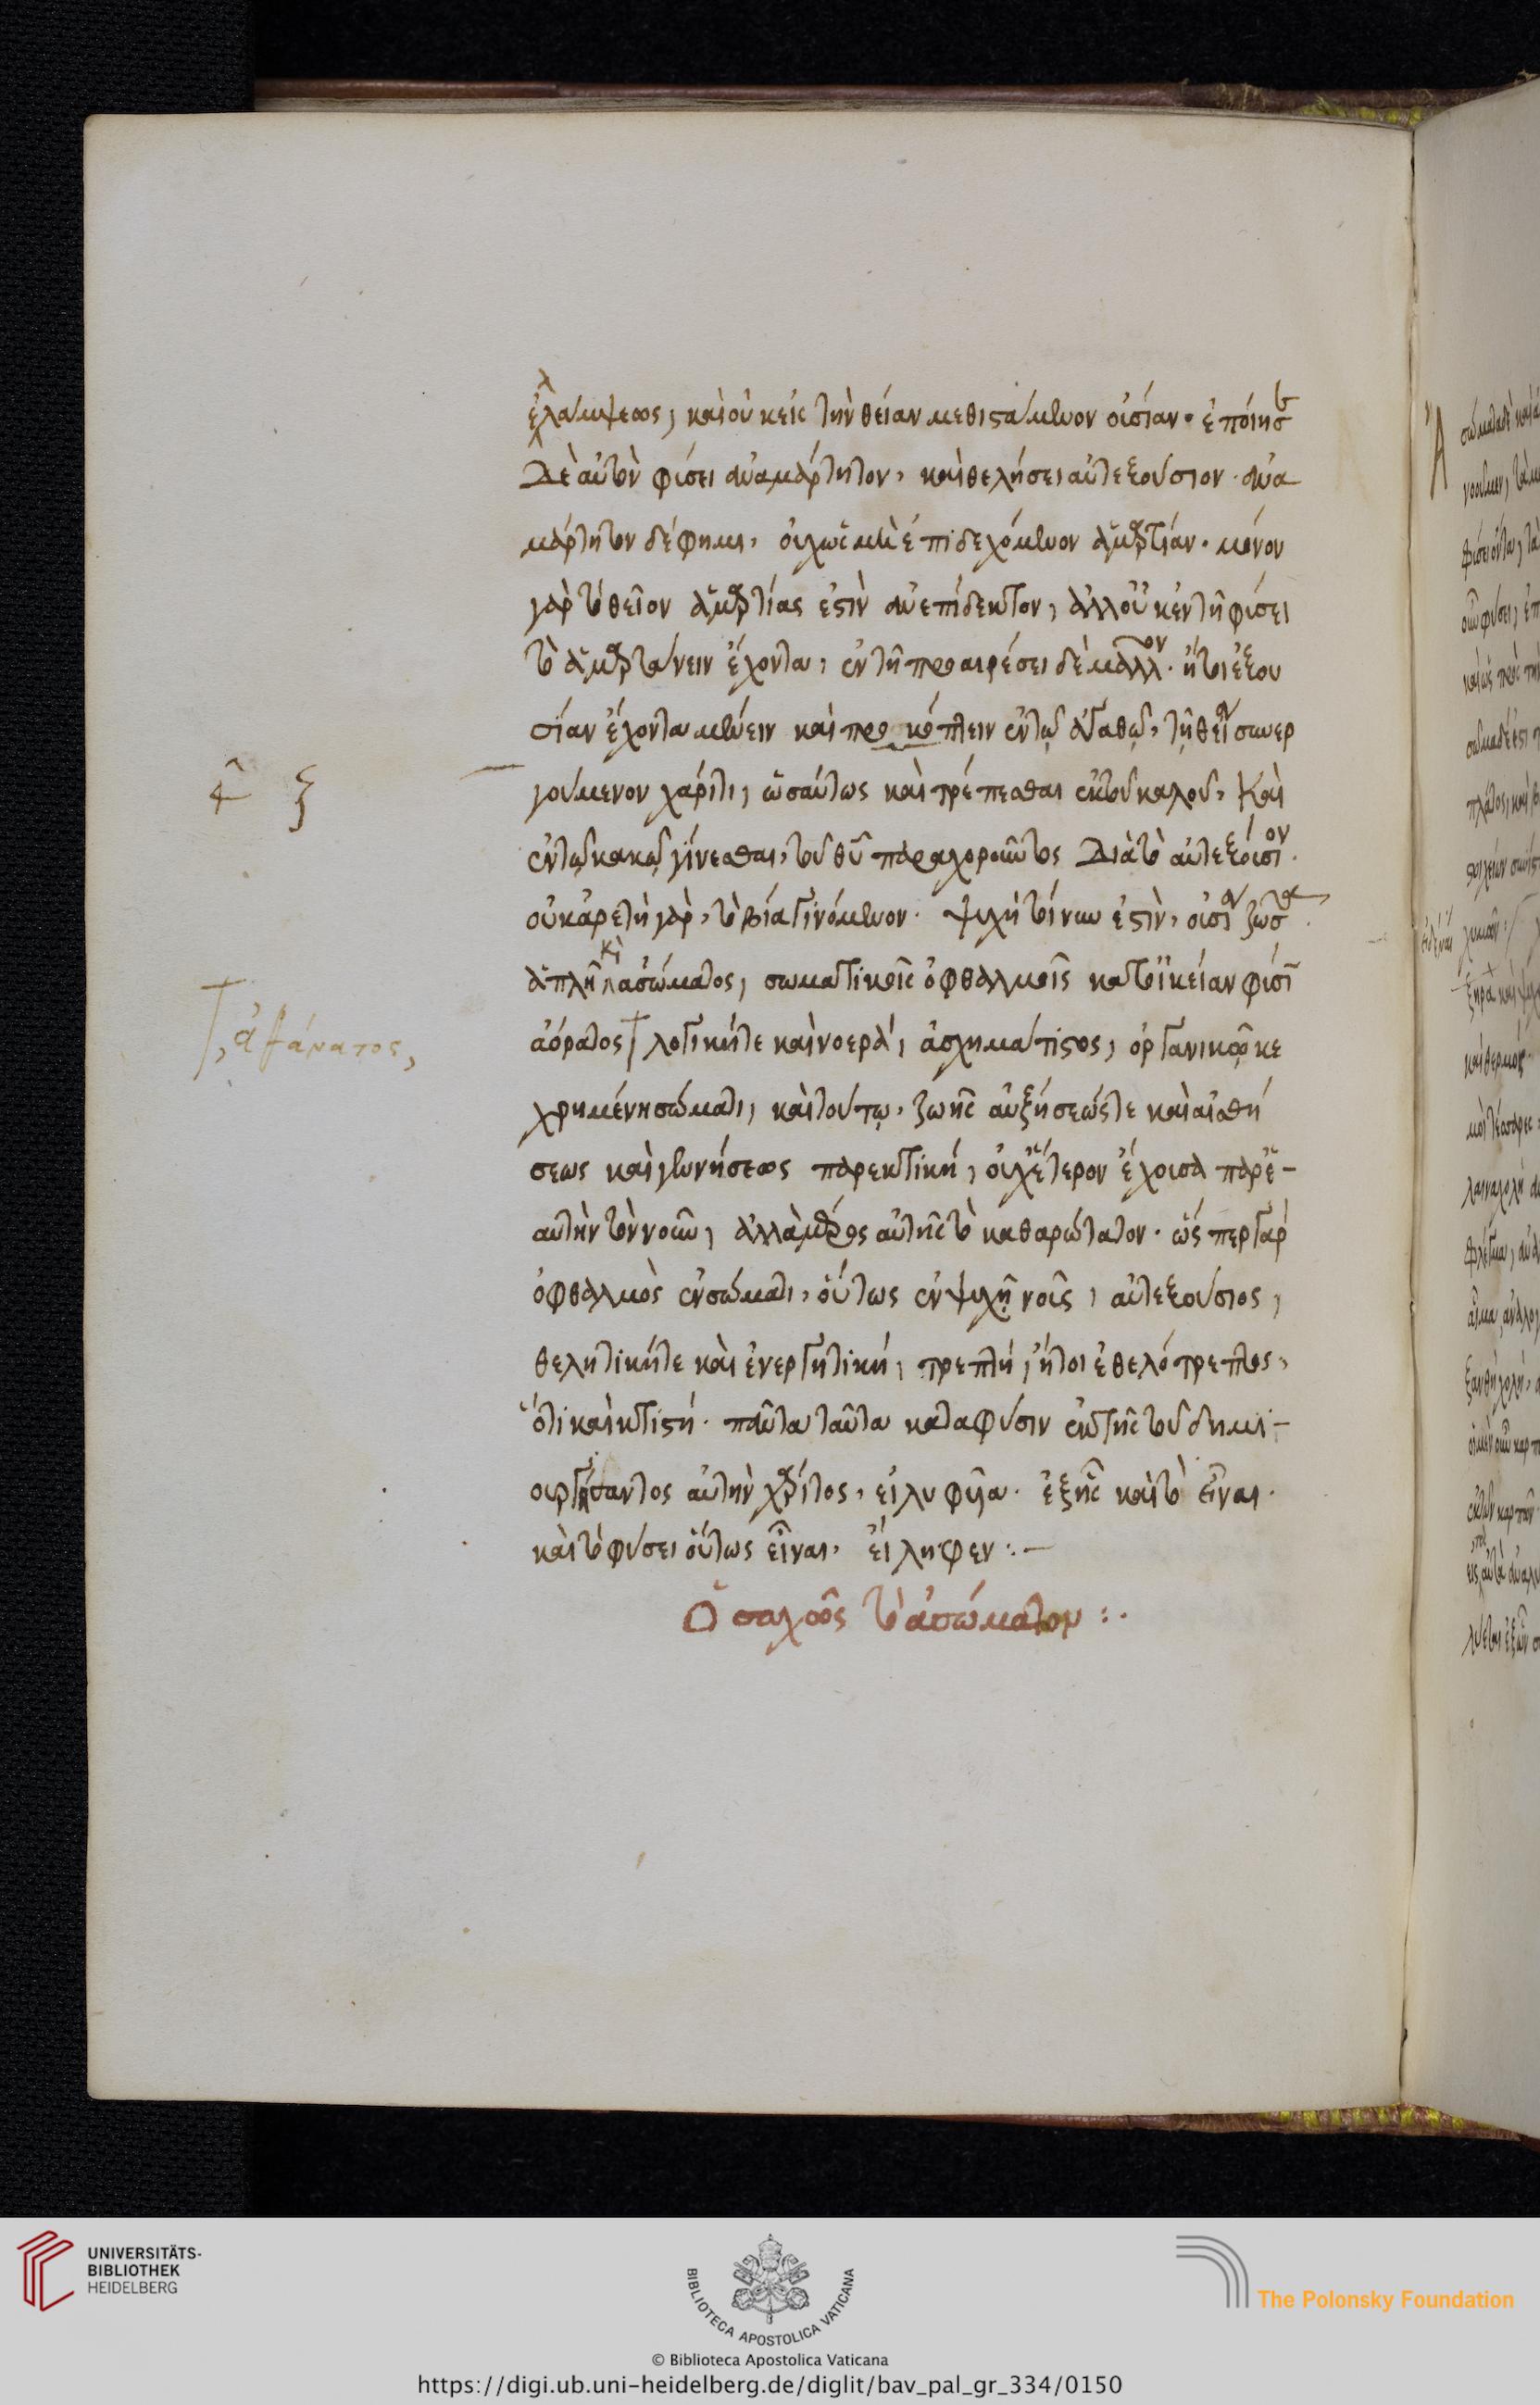 ἐλλάμψεως, καὶ οὐκ εἰς τὴν θείαν μεθιστάμενον οὐσίαν · ἐποίησε
δὲ αὐτὸν φύσει ἀναμάρτητον, καὶ θελήσει αὐτεξούσιον · ἀνα
μάρτητον δέ φημι, οὐχ ὡς μὴ ἐπιδεχόμενον ἁμαρτίαν · μόνον
γὰρ τὸ θεῖον ἁμαρτίας ἐστὶν ἀνεπίδεκτον, ἀλλ' οὐκ ἐν τῇ φύσει
τὸ ἁμαρτάνειν ἔχοντα, ἐν τῇ προαιρέσει δὲ μᾶλλον · ἤτοι ἐξου
σίαν ἔχοντα μένειν καὶ προκόπτειν ἐν τῷ ἀγαθῷ, τῇ θείᾳ συνερ
γούμενον χάριτι, ὡσαύτως καὶ τρέπεσθαι ἐκ τοῦ καλοῦ, καὶ
ἐν τῷ κακῷ γίνεσθαι, τοῦ θῦ παραχωροῦντος διὰ τὸ αὐτεξούσιον ·
οὐκ ἀρετὴ γὰρ, τὸ βίᾳ γινόμενον · ψυχὴ τοίνυν ἐστὶν, οὐσία ζῶσα
ἁπλῆ καὶ ἀσώματος, σωματικοῖς ὀφθαλμοῖς κατ' οἰκείαν φύσιν
ἀόρατος λογική τε καὶ νοερά, ἀσχημάτιστος, ὀργανικῷ κε
χρημένη σώματι, καὶ τούτῳ, ζωῆς αὐξήσεώς τε καὶ αἰσθή
σεως καὶ γεννήσεως παρεκτική, οὐχ ἕτερον ἔχουσα παρ' ἑ-
αυτὴν τὸν νοῦν, ἀλλὰ μέρος αὐτῆς τὸ καθαρώτατον · ὥσπερ γὰρ
ὀφθαλμὸς ἐν σώματι, οὕτως ἐν ψυχῇ νοῦς, αὐτεξούσιος,
θελητική τε καὶ ἐνεργητική, τρεπτή, ἤτοι ἐθελότρεπτος,
ὅτι καὶ κτιστή · πάντα ταῦτα κατὰ φύσιν ἐκ τῆς τοῦ δημι-
ουργήσαντος αὐτὴν χάριτος, εἰλυφῆα · ἐξ ἧς καὶ τὸ εἶναι ·
καὶ τὸ φύσει οὕτως εἶναι, εἴληφεν : -
Ὁσαχῶς τὸ ἀσώματον : ·
, ἀθάνατος,
UNIVERSITÄTS-
BIBLIOTHEK
HEIDELBERG
BIBLIOTECA APOSTOLICA VATICANA
The Polonsky Foundation
© Biblioteca Apostolica Vaticana
https://digi.ub.uni-heidelberg.de/diglit/bav_pal_gr_334/0150